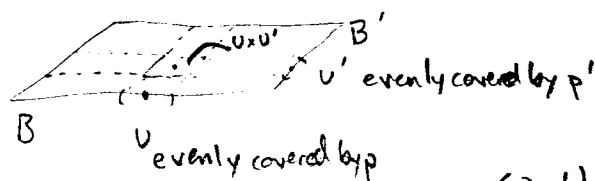 B'
U×U'
U' evenly covered by p'
B
U evenly covered by p